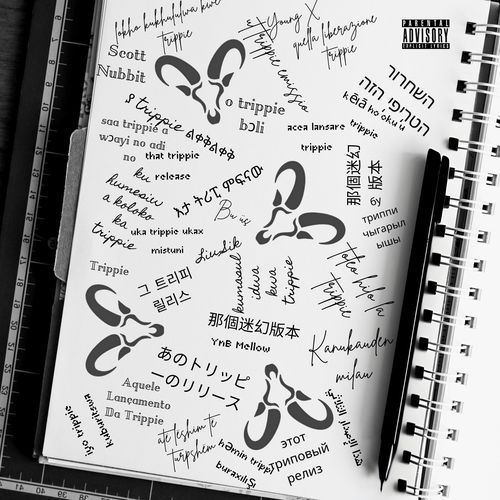 lokho kukhululwa kwe
trippie
Young X
quella liberazione
trippie
ut trippie emissio
PARENTAL
ADVISORY
EXPLICIT LYRICS
Scott
Nubbit
השחרור
הטהפי הזה
kēlā ho okuʻu
trippie
o trippie
bɔli
saa trippie a
wɔayi no adi
no
that trippie
release
acea lansare
trippie
那個迷幻
版本
ku
humesiw
a koloko
ka
trippie
uka trippie ukax
mistuni
Bu uşş
Liudik
триппи
чыгарыл
ышы
Trippie
그 트리피
릴리스
kumasul
idwa
kwa
trippie
Toleo hilo la
Trippie
那個迷幻版本
YnB Mellow
Kanukauden
milau
あのトリッピ
ーのリリース
Aquele
Lançamento
Da Trippie
iyo trippie
kuburitswa
atë lëshim të
turpshëm
həmin tripp
buraxılış
этот
триповый
релиз